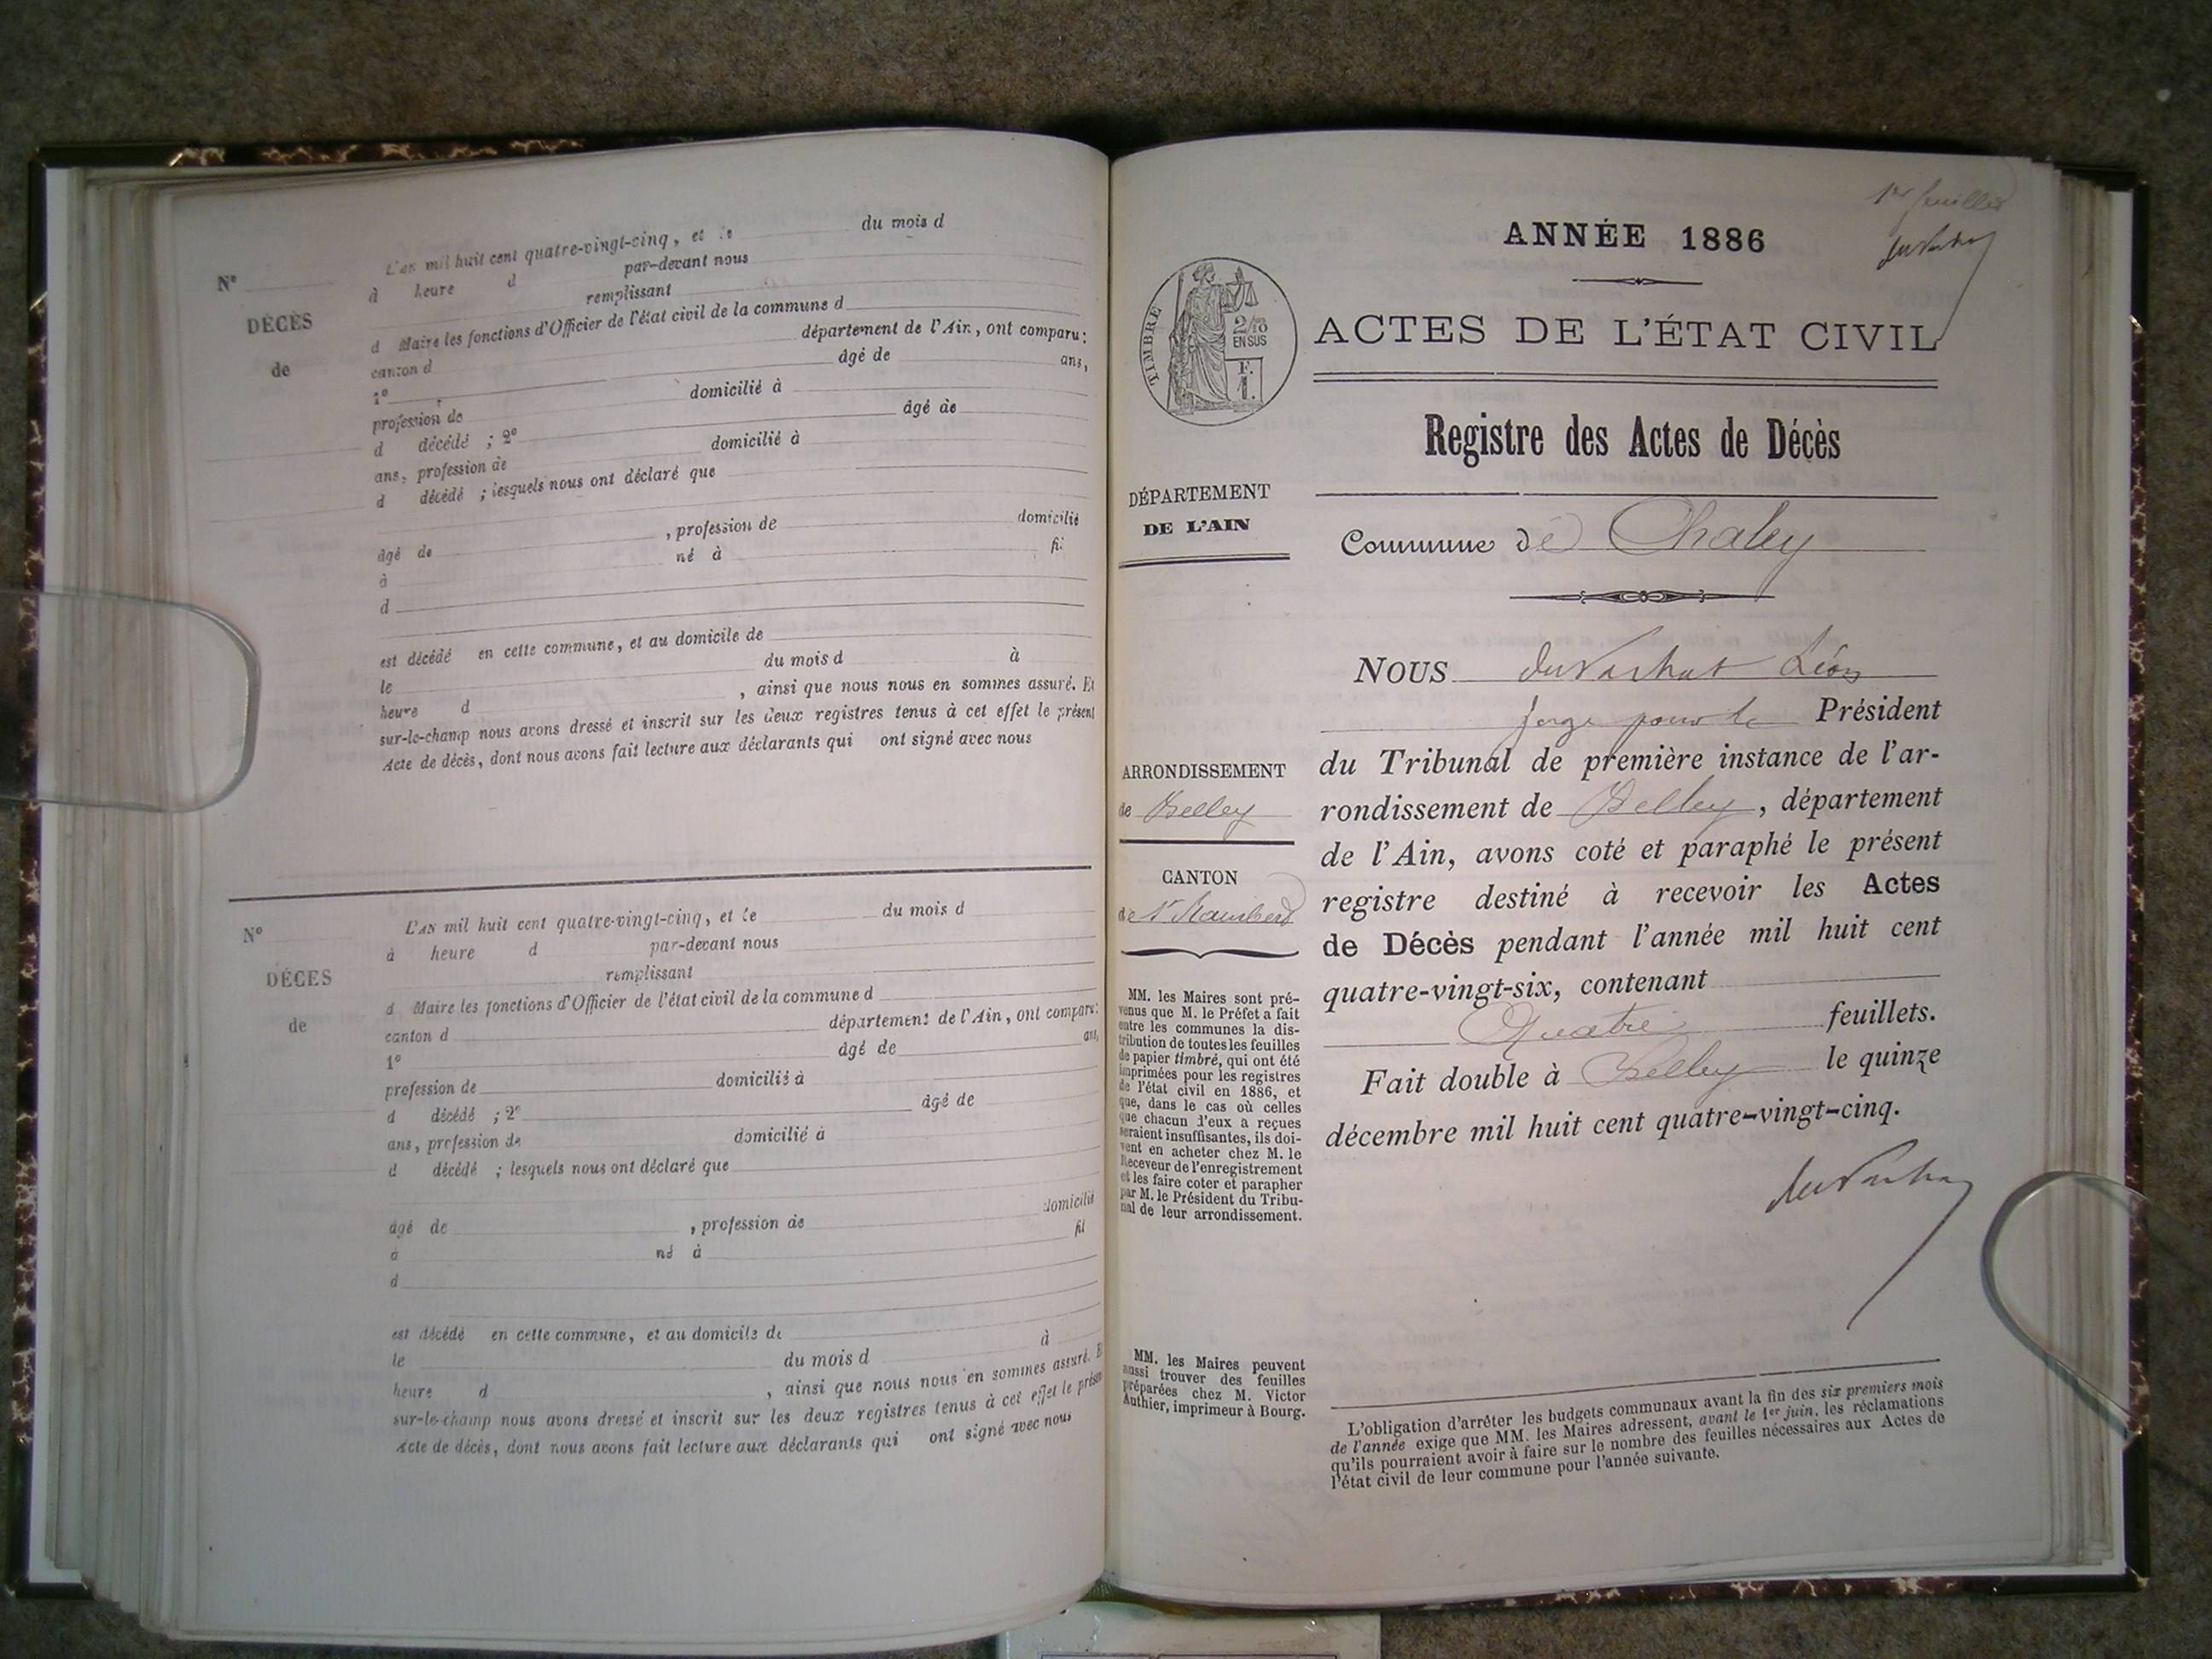 L'an mil huit cent quatre-vingt-cinq, et le du mois d
à heure d par-devant nous
remplissant
d Maire les fonctions d'Officier de l'état civil de la commune d
canton d département de l'Ain, ont comparu:
1º âgé de ans,
profession de domicilié à
d décédé ; 2º âgé de
ans, profession de domicilié à
d décédé ; lesquels nous ont déclaré que
âgé de , profession de domicilié
à né à fil
d
est décédé en cette commune, et au domicile de
le du mois d à
heure d , ainsi que nous nous en sommes assuré. Et
sur-le-champ nous avons dressé et inscrit sur les deux registres tenus à cet effet le présent
Acte de décès, dont nous avons fait lecture aux déclarants qui ont signé avec nous
Nº
DÉCÈS
de
L'AN mil huit cent quatre-vingt-cinq, et le du mois d
à heure d par-devant nous
remplissant
d Maire les fonctions d'Officier de l'état civil de la commune d
canton d département de l'Ain, ont comparu:
1º âgé de ans,
profession de domicilié à
d décédé ; 2º âgé de
ans, profession de domicilié à
d décédé ; lesquels nous ont déclaré que
âgé de , profession de domicilié
à né à fil
d
est décédé en cette commune, et au domicile de
le du mois d à
heure d , ainsi que nous nous en sommes assuré. E
sur-le-champ nous avons dressé et inscrit sur les deux registres tenus à cet effet le présen
Acte de décès, dont nous avons fait lecture aux déclarants qui ont signé avec nous
Nº
DÉCÈS
de
1er feuillet
ANNÉE 1886
TIMBRE
2/10
EN SUS
F.
1.
ACTES DE L'ÉTAT CIVIL
Registre des Actes de Décès
DÉPARTEMENT
DE L'AIN
Commune de Chaley
NOUS Léon
Juge pour le Président
du Tribunal de première instance de l'ar-
rondissement de Belley, département
de l'Ain, avons coté et paraphé le présent
registre destiné à recevoir les Actes
de Décès pendant l'année mil huit cent
quatre-vingt-six, contenant
Quatre feuillets.
Fait double à Belley le quinze
décembre mil huit cent quatre-vingt-cinq.
ARRONDISSEMENT
de Belley
CANTON
de St Rambert
MM. les Maires sont pré-
venus que M. le Préfet a fait
entre les communes la dis-
tribution de toutes les feuilles
de papier timbré, qui ont été
imprimées pour les registres
de l'état civil en 1886, et
que, dans le cas où celles
que chacun d'eux a reçues
seraient insuffisantes, ils doi-
vent en acheter chez M. le
Receveur de l'enregistrement
et les faire coter et parapher
par M. le Président du Tribu-
nal de leur arrondissement.
MM. les Maires peuvent
aussi trouver des feuilles
préparées chez M. Victor
Authier, imprimeur à Bourg.
L'obligation d'arrêter les budgets communaux avant la fin des six premiers mois
de l'année exige que MM. les Maires adressent, avant le 1er juin, les réclamations
qu'ils pourraient avoir à faire sur le nombre des feuilles nécessaires aux Actes de
l'état civil de leur commune pour l'année suivante.